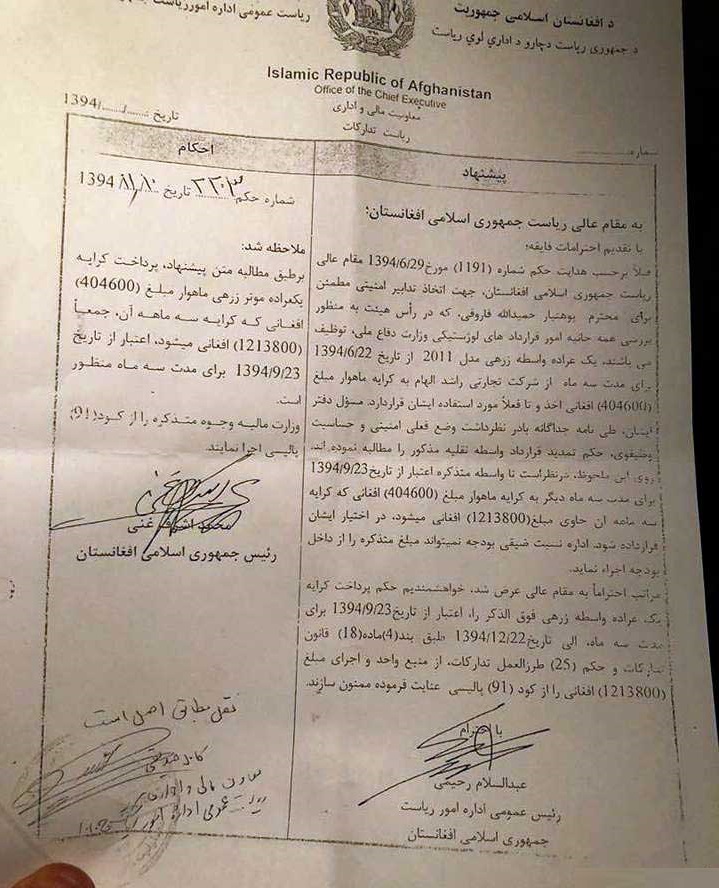 د افغانستان اسلامی جمهوریت
د جمهوری ریاست دچارو د اداری لوی ریاست
ریاست عمومی اداره امور ریاست
Islamic Republic of Afghanistan
Office of the Chief Executive
معاونیت مالی و اداری
ریاست تدارکات
تاریخ ....../....../1394
شماره
پیشنهاد
به مقام عالی ریاست جمهوری اسلامی افغانستان؛
با تقدیم احترامات فایقه؛
قبلاً برحسب هدایت حکم شماره (1191) مورخ 1394/6/29 مقام عالی
ریاست جمهوری اسلامی افغانستان، جهت اتخاذ تدابیر امنیتی مطمئن
برای محترم پوهنیار حمیدالله فاروقی، که در رأس هیئت به منظور
بررسی همه جانبه امور قرارداد های لوژستیکی وزارت دفاع ملی، توظیف
می باشند، یک عراده واسطه زرهی مدل 2011 از تاریخ 1394/6/22
برای مدت سه ماه از شرکت تجارتی راشد الهام به کرایه ماهوار مبلغ
(404600) افغانی اخذ و تا فعلاً مورد استفاده ایشان قراردارد. مسؤل دفتر
ایشان، طی نامه جداگانه بادر نظرداشت وضع فعلی امنیتی و حساسیت
وظیفوی، حکم تمدید قرارداد واسطه نقلیه مذکور را مطالبه نموده اند.
روی این ملحوظ، درنظراست تا واسطه متذکره اعتبار از تاریخ 1394/9/23
برای مدت سه ماه دیگر به کرایه ماهوار مبلغ (404600) افغانی که کرایه
سه ماهه آن حاوی مبلغ (1213800) افغانی میشود، در اختیار ایشان
قرارداده شود. اداره نسبت ضیقی بودجه نمیتواند مبلغ متذکره را از داخل
بودجه اجراء نماید.
مراتب احتراماً به مقام عالی عرض شد، خواهشمندیم حکم پرداخت کرایه
یک عراده واسطه زرهی فوق الذکر را، اعتبار از تاریخ 1394/9/23 برای
مدت سه ماه، الی تاریخ 1394/12/22 طبق بند (4) ماده (18) قانون
تدارکات و حکم (25) طرزالعمل تدارکات، از منبع واحد و اجرای مبلغ
(1213800) افغانی را از کود (91) پالیسی عنایت فرموده ممنون سازند.
با احترام
عبدالسلام رحیمی
رئیس عمومی اداره امور ریاست
جمهوری اسلامی افغانستان
احکام
شماره حکم ۲۲۰۳ تاریخ ۱۰/۸/ 1394
ملاحظه شد:
برطبق مطالبه متن پیشنهاد، پرداخت کرایه
یکعراده موتر زرهی ماهوار مبلغ (404600)
افغانی که کرایه سه ماهه آن، جمعاً
(1213800) افغانی میشود، اعتبار از تاریخ
1394/9/23 برای مدت سه ماه منظور
است.
وزارت مالیه وجوه متذکره را از کود (91)
پالیسی اجرا نمایند.
محمد اشرف غنی
رئیس جمهوری اسلامی افغانستان
نقل مطابق اصل است
معاون مالی و اداری
ریاست عمومی اداره امور